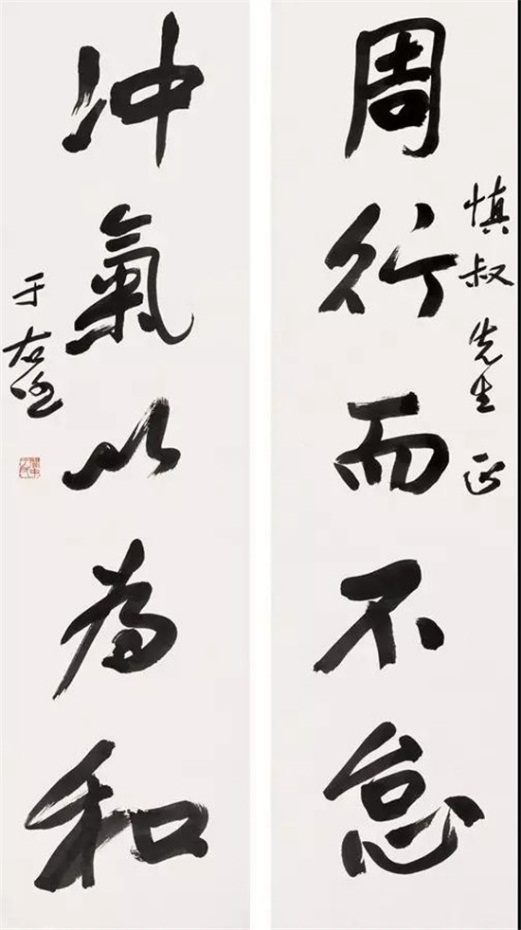 慎叔先生正
周行而不怠
冲氣以為和
于右任